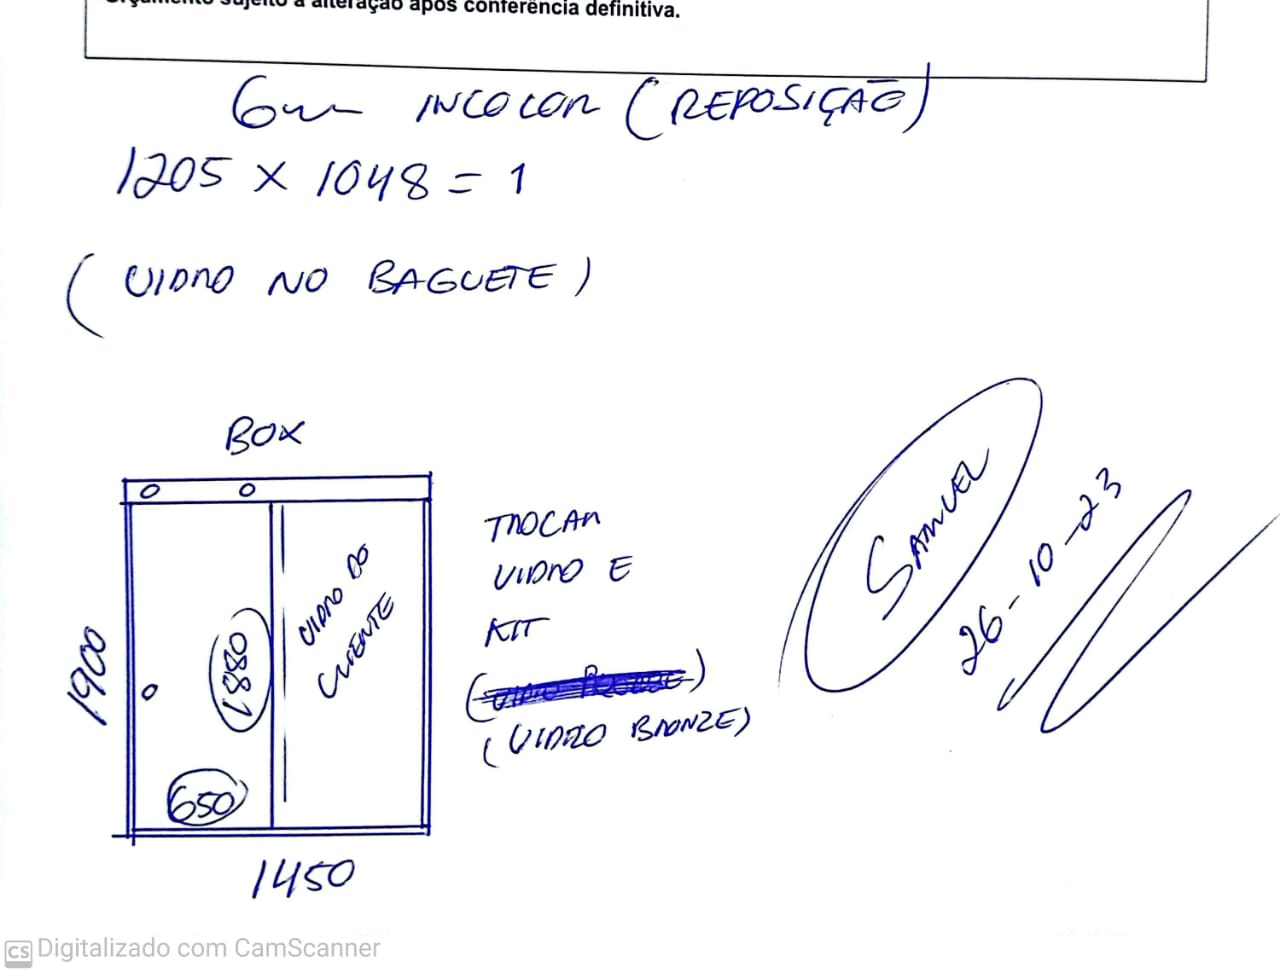 Orçamento sujeito a alteração após conferência definitiva.
6mm INCOLOR (REPOSIÇÃO)
1205 X 1048 = 1
(VIDRO NO BAGUETE)
BOX
TROCAR
VIDRO E
KIT
(VIDRO BRONZE)
VIDRO DO
CLIENTE
1880
650
1900
1450
SAMUEL
26-10-23
CS Digitalizado com CamScanner